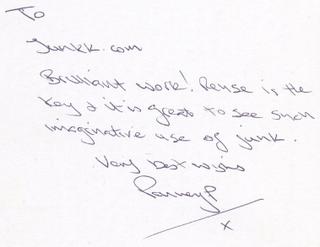 To
Junkk.com
Brilliant work! Reuse is the
key & it is great to see such
imaginative use of junk.
Very best wishes
x